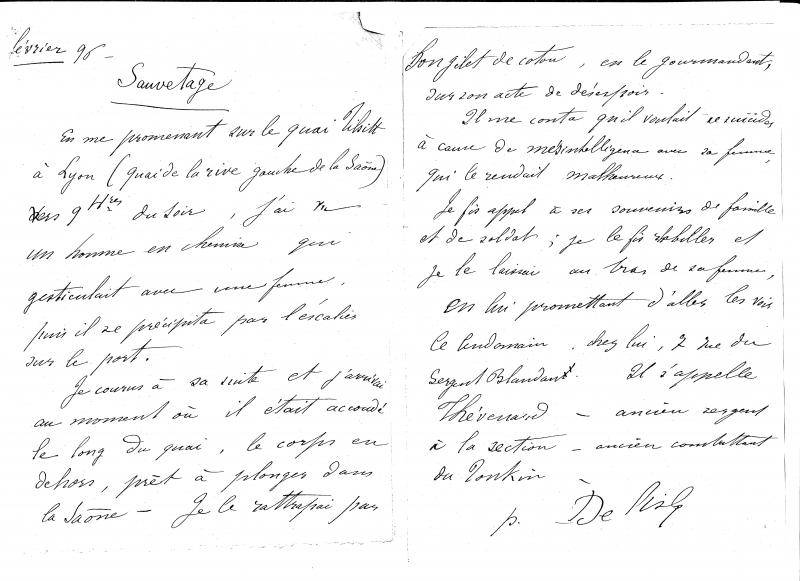 février 96 -
Sauvetage
En me promenant sur le quai Tilsitt
à Lyon (quai de la rive gauche de la Saône)
vers 9 Hres du soir, j'ai vu
un homme en chemise qui
gesticulait avec une femme,
puis il se précipita par l'escalier
sur le port.
Je courus à sa suite et j'arrivai
au moment où il était accoudé
le long du quai, le corps en
dehors, prêt à plonger dans
la Saône - Je le rattrapai par
son gilet de coton, en le gourmandant,
sur son acte de désespoir.
Il me conta qu'il voulait se suicider
à cause de mésintelligence avec sa femme,
qui le rendait malheureux.
Je fis appel à ses souvenirs de famille
et de soldat ; je le fis rhabiller et
je le laissai au bras de sa femme,
en lui promettant d'aller les voir
le lendemain, chez lui, 2 rue du
Sergent Blandant. Il s'appelle
Thévenard - ancien sergent
à la section - ancien combattant
du Tonkin -
p. De